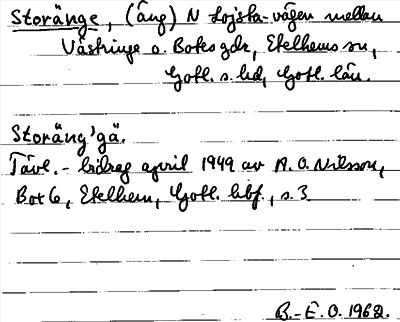 Storänge, (äng) N Lojsta-vägen mellan
Västringe o. Botes gdr, Etelhems sn,
Gotl. s. hd, Gotl. län.
Storäng'gä.
Tävl.-bidrag april 1949 av A. O. Nilsson,
Bot 6, Etelhem, Gotl. hbf., s. 3
B.-E. O. 1962.